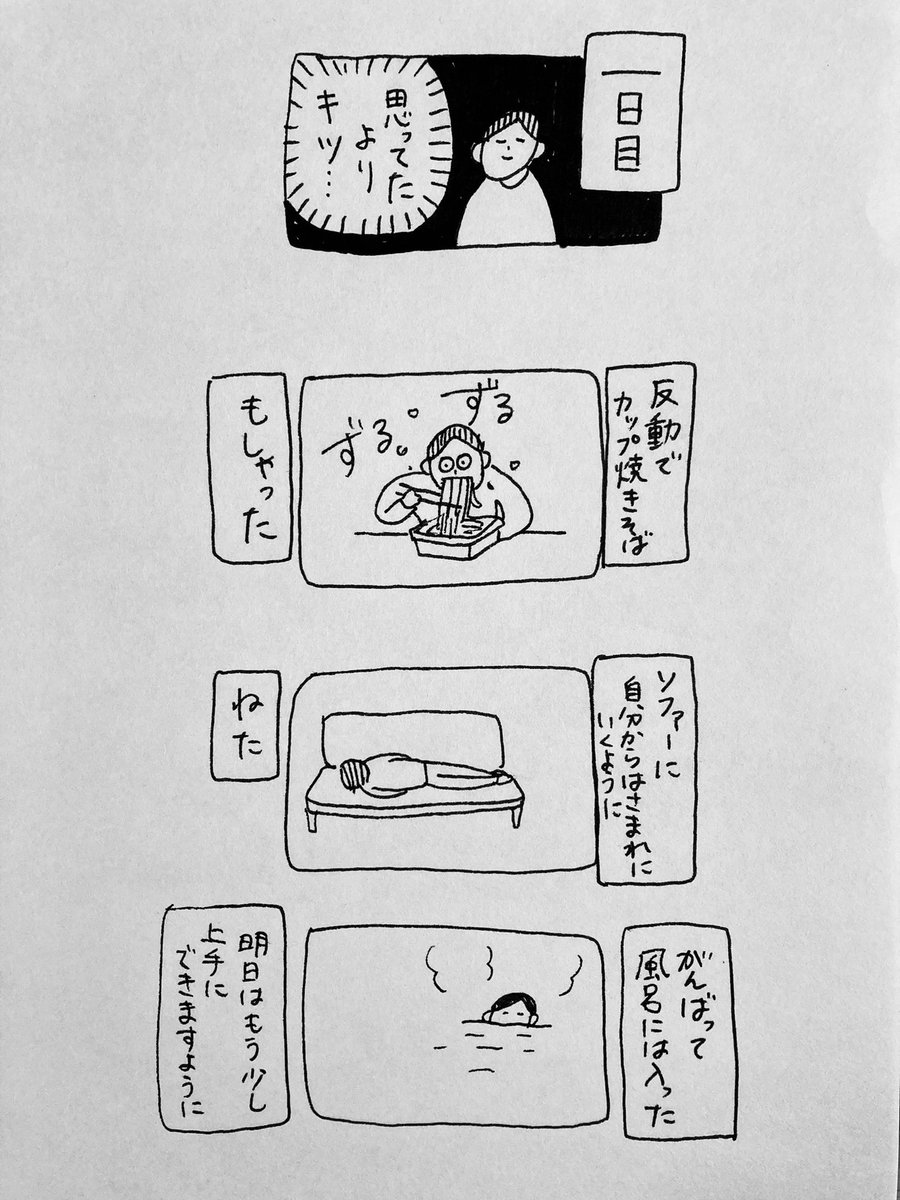 一日目
思ってた
より
キツ…
反動で
カップ焼きそば
ずる
ずる
もしゃった
ソファーに
自分からはさまれに
いくように
ねた
がんばって
風呂には入った
明日はもう少し
上手に
できますように